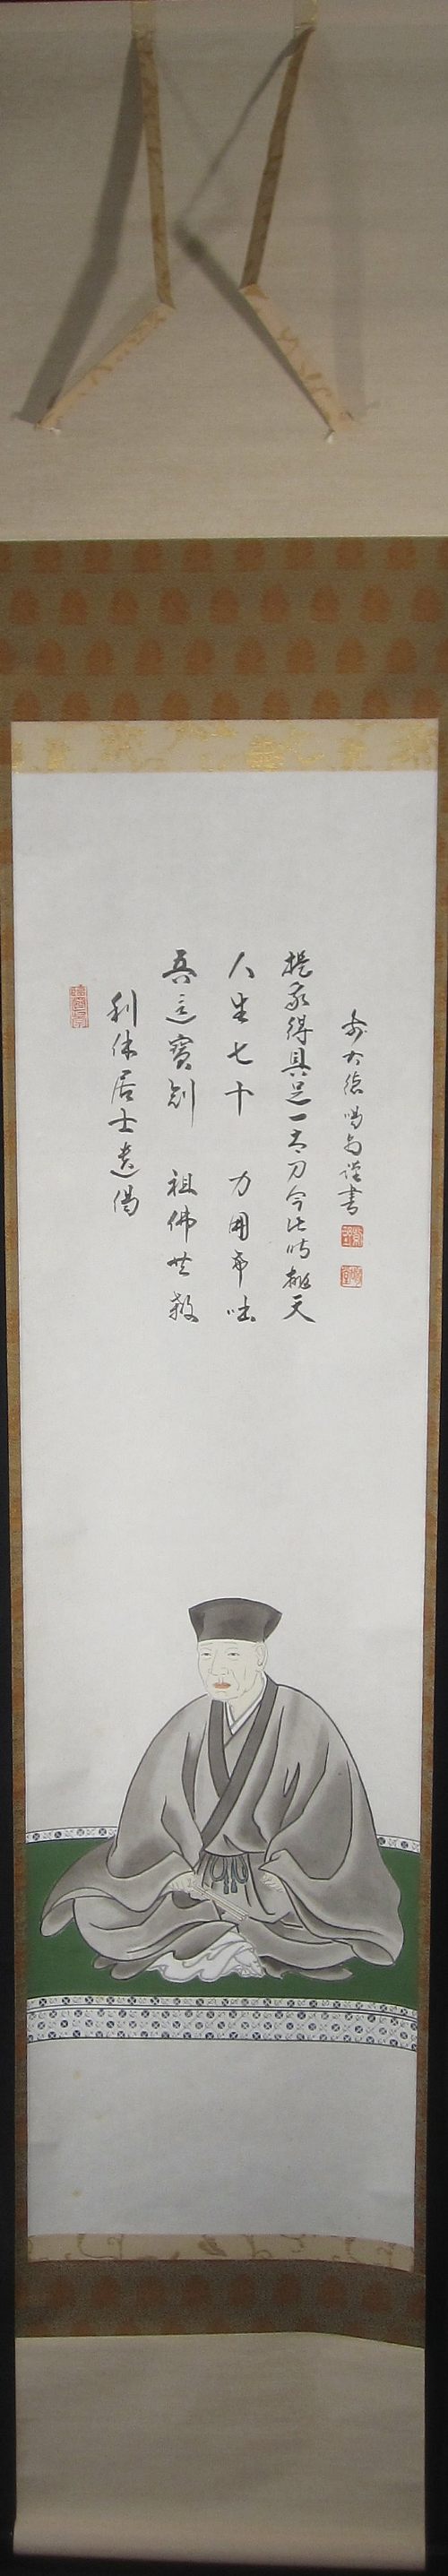 利休居士遺偈
吾這寶剣 祖佛共殺
人生七十 力囲希咄
提我得具足一太刀今此時抛天
大徳 謹書